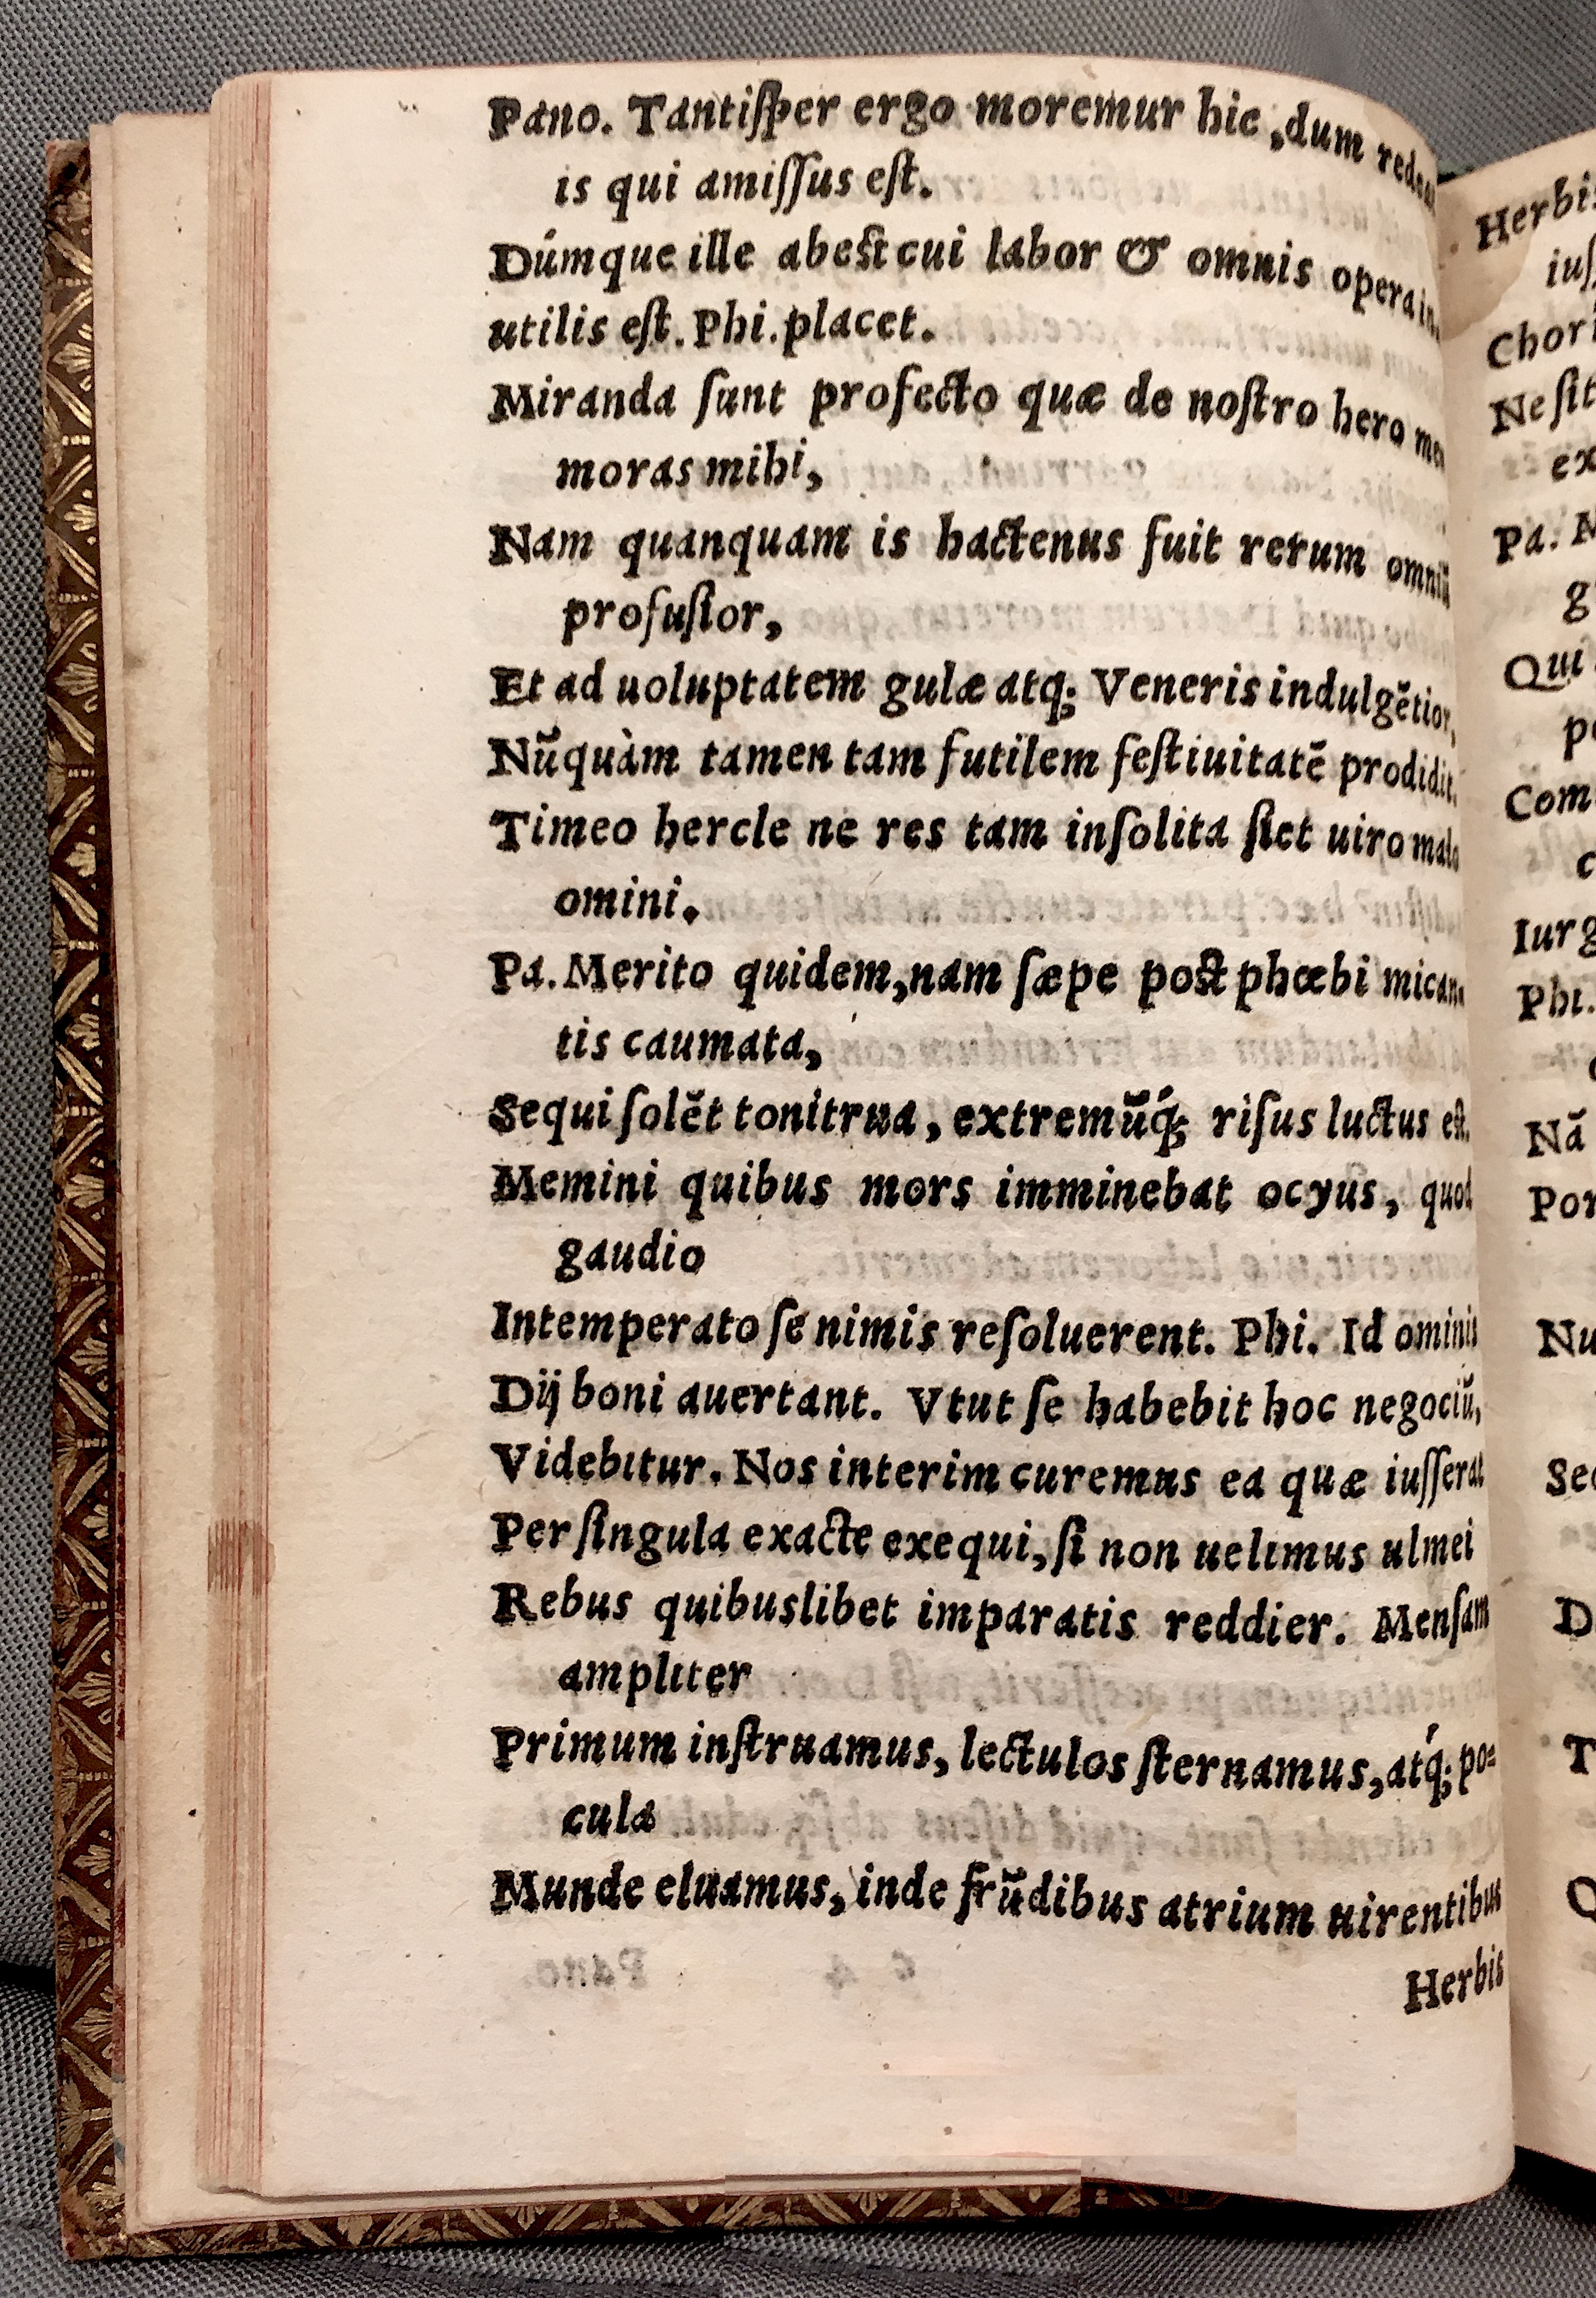 Pano. Tantiſper ergo moremur hic, dum redeat
is qui amiſſus eſt.
Dúmque ille abest cui labor & omnis opera in-
utilis eſt. Phi. placet.
Miranda ſunt profecto quæ de noſtro hero me-
moras mihi,
Nam quanquam is hactenus fuit rerum omniũ
profuſior,
Et ad uoluptatem gulæ atq; Veneris indulgẽtior,
Nũquàm tamen tam futilem feſtiuitatẽ prodidit.
Timeo hercle ne res tam inſolita fiet uiro malo
omini.
Pa. Merito quidem, nam ſæpe post phœbi mican-
tis caumata,
Sequi ſolẽt tonitrua, extremũq́; riſus luctus est.
Memini quibus mors imminebat ocyus, quod
gaudio
Intemperato ſe nimis reſoluerent. Phi. Id ominis
Dij boni auertant. Vtut ſe habebit hoc negociũ,
Videbitur. Nos interim curemus ea quæ iuſſerat
Per ſingula exacte exequi, ſi non uelimus ulmei
Rebus quibuslibet imparatis reddier. Menſam
ampliter
Primum inſtruamus, lectulos ſternamus, atq́; po-
cula
Munde eluamus, inde frũdibus atrium uirentibus
Herbis
Chor
Ne ſit
ex
Pa.
g
Qui
Com
c
Iurg
Phi.
Nã
Por
Nu
D
T